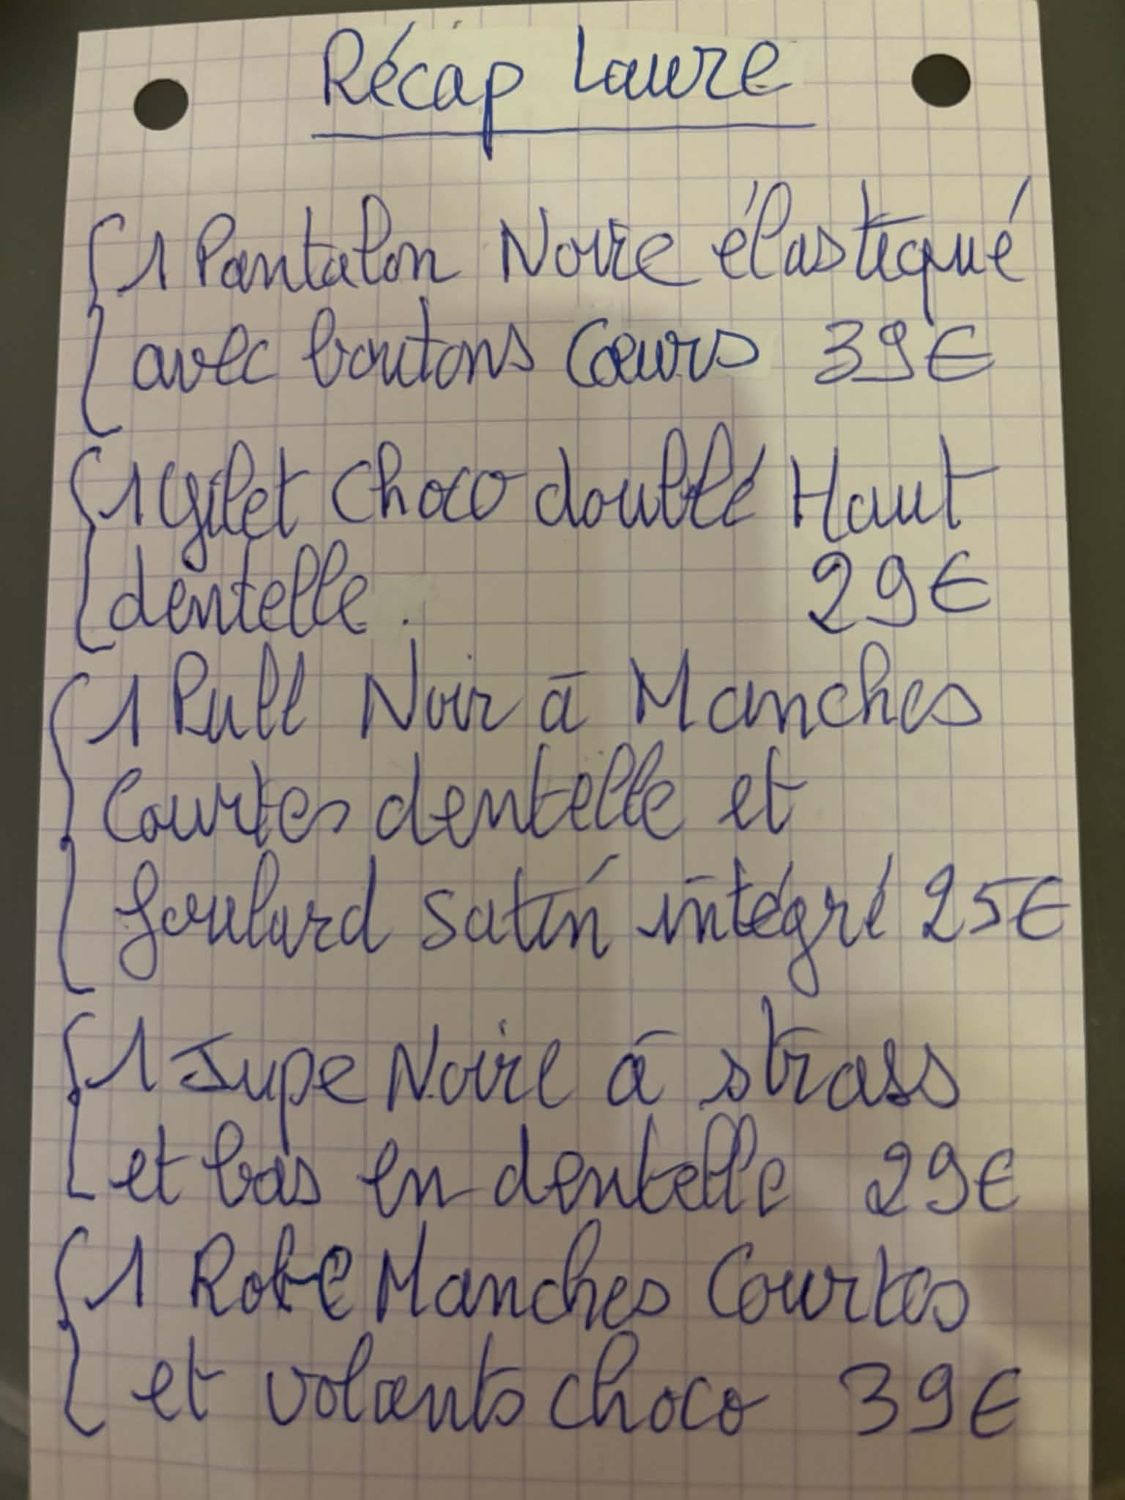 Récap Laure
1 Pantalon Noire élastiqué
avec boutons Cœurs 39€
1 Gilet Choco doublé Haut
dentelle. 29€
1 Pull Noir à Manches
Courtes dentelle et
foulard satin intégré 25€
1 Jupe Noire à strass
et bas en dentelle 29€
1 Robe Manches Courtes
et volants choco 39€